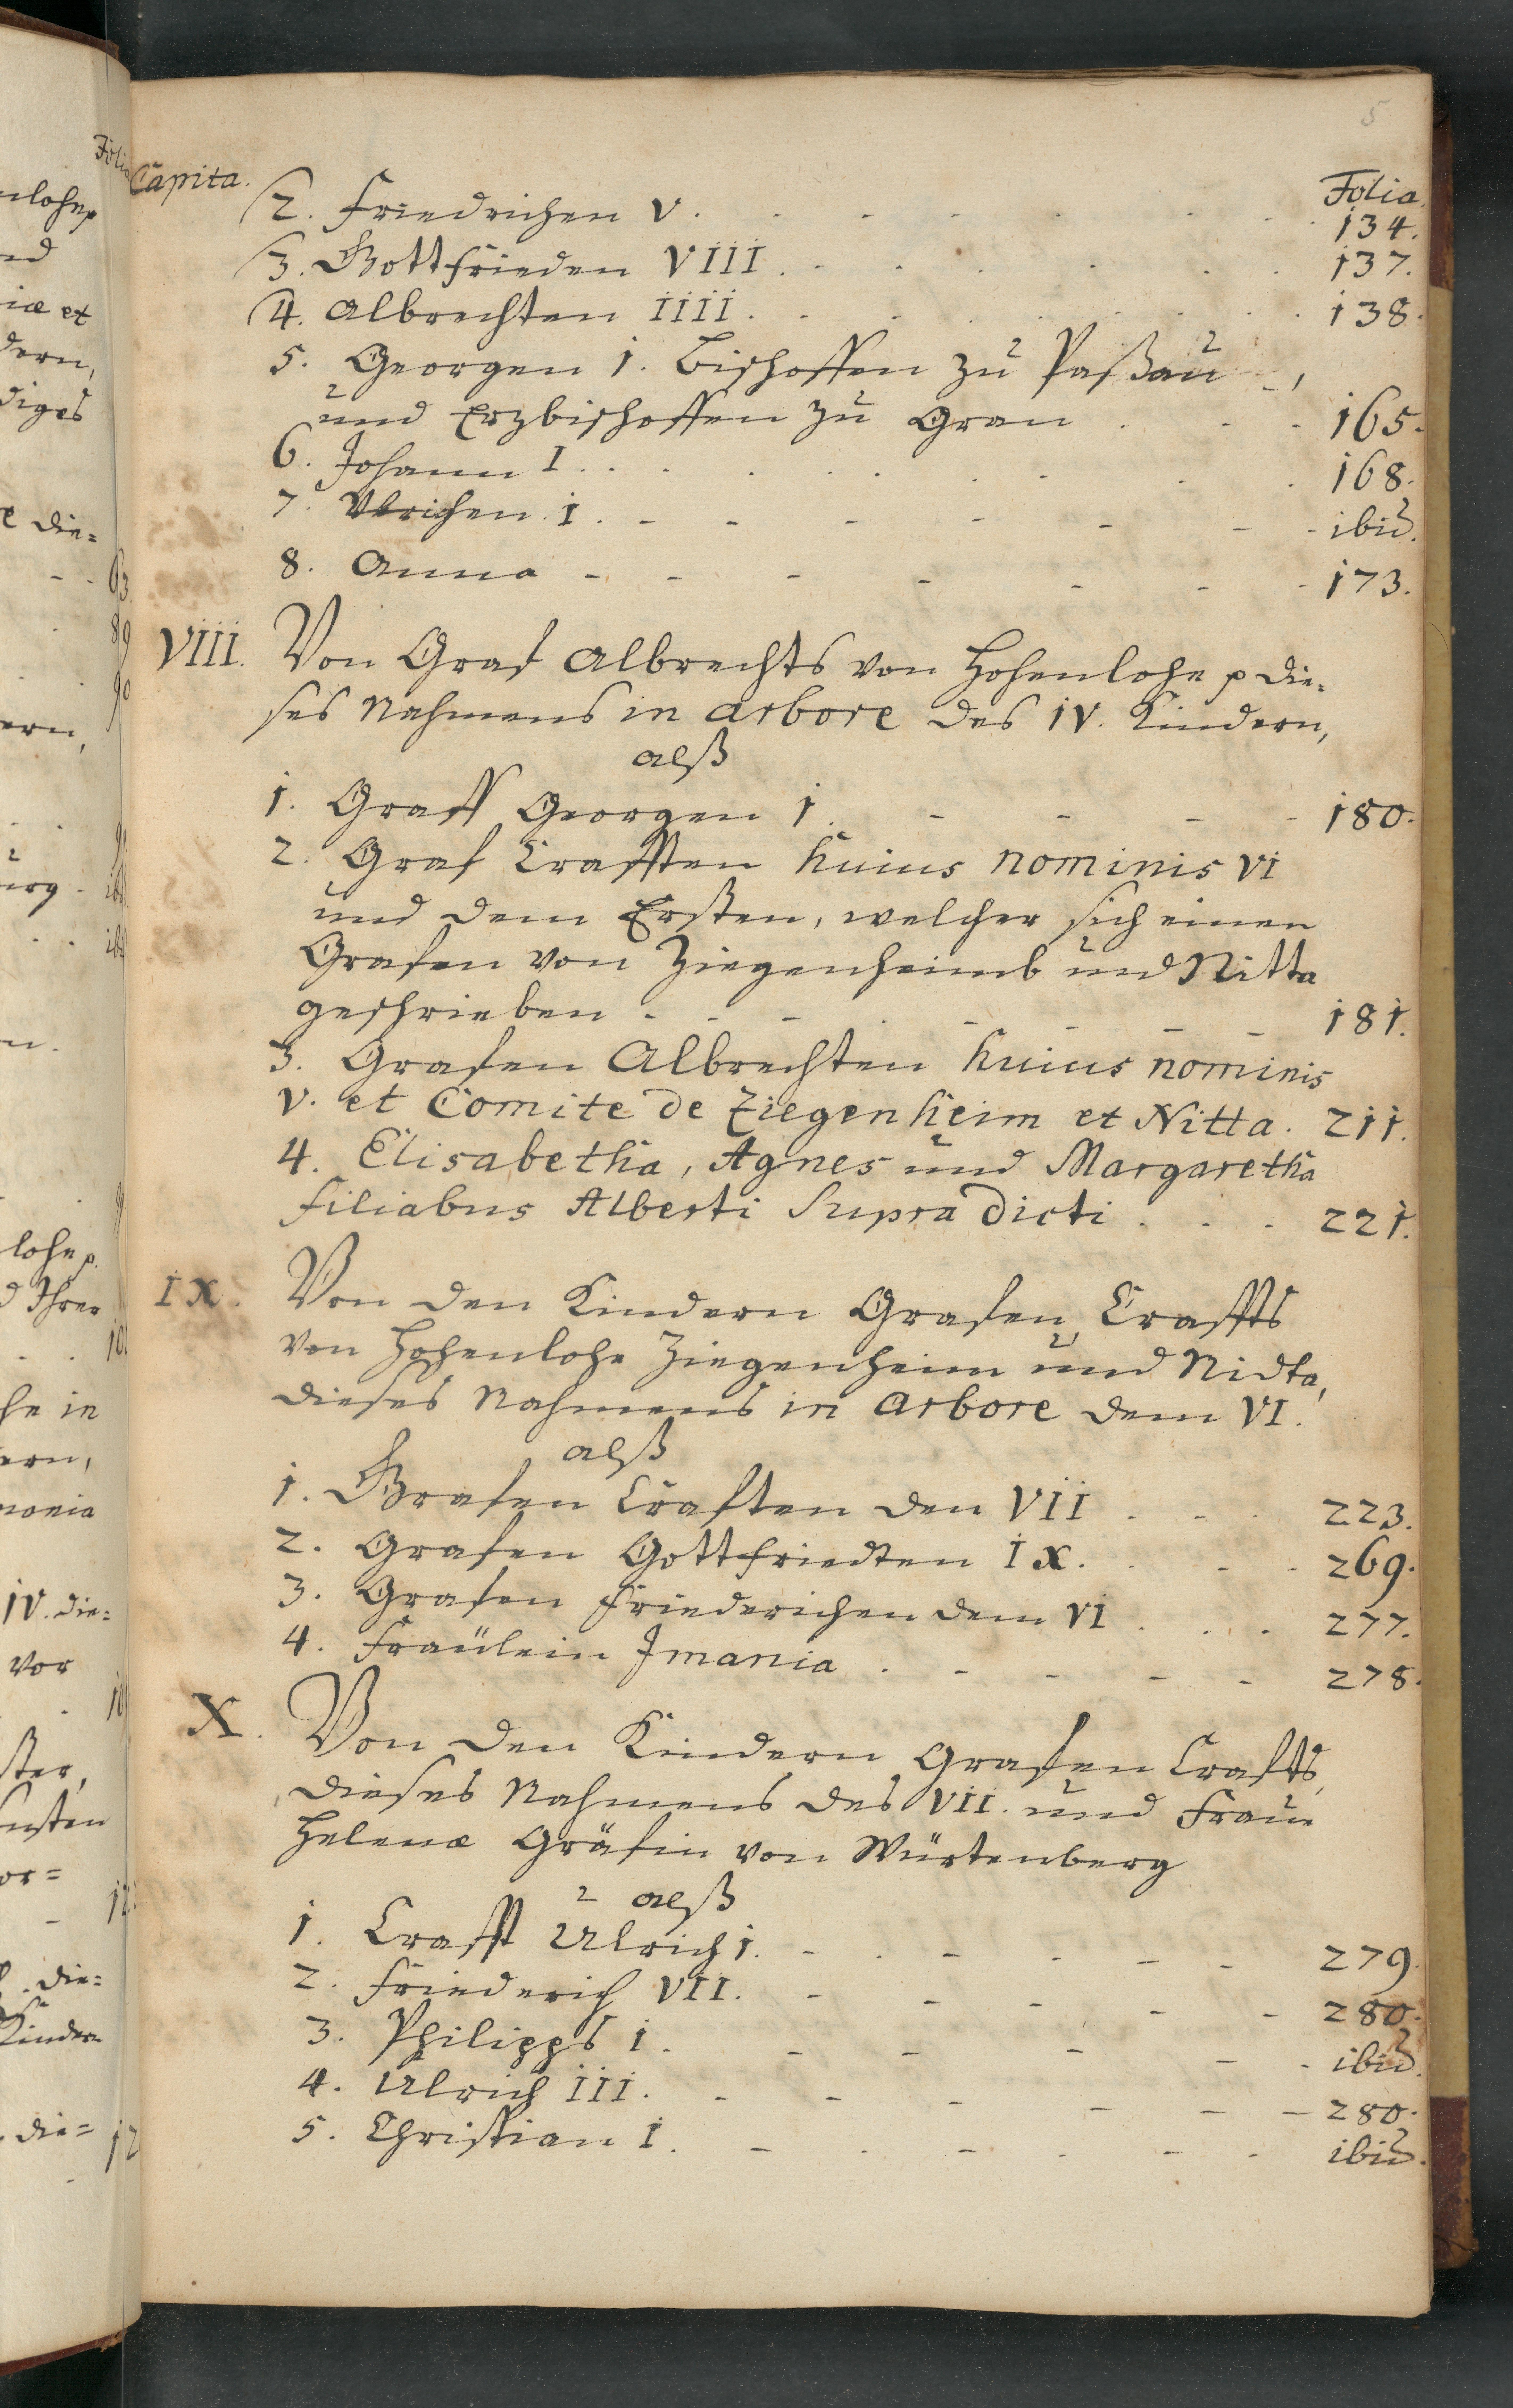 5
Capita. Folia.
2. Friedrichen V. 134.
3. Gottfrieden VIII. 137.
4. Albrechten IIII. 138.
5. Georgen 1. Bischoffen zu Paßau,
und Erzbischoffen zu Gran 165.
6. Johann I. 168.
7. Vlrichen 1. ibid.
8. Anna 173.
VIII. Von Graf Albrechts von Hohenlohe p die-
ses Nahmens in arbore des IV. Kindern,
alß
1. Graff Georgen 1. 180.
2. Graf Crafften huius nominis VI
und dem Ersten, welcher sich einen
Grafen von Ziegenheimb und Nitta
geschrieben 181.
3. Grafen Albrechten huius nominis
V. et Comite de Ziegenheim et Nitta. 211.
4. Elisabetha, Agnes und Margaretha
filiabus Alberti supra dicti 221.
IX. Von den Kindern Grafen Craffts
von Hohenlohe Ziegenheim und Nidta,
dieses Nahmens in arbore dem VI.
alß
1. Grafen Craften den VII 223.
2. Grafen Gottfriedten IX. 269.
3. Grafen Friederichen dem VI 277.
4. Fraülein Jmania 278.
X. Von den Kindern Grafen Crafts,
dieses Nahmens des VII. und Fraun
Helenæ Gräfin von Würtenberg
alß
1. Crafft Ulrich 1. 279.
2. Friederich VII. 280.
3. Philipps 1. ibid.
4. Ulrich III. 280.
5. Christian 1. ibid.